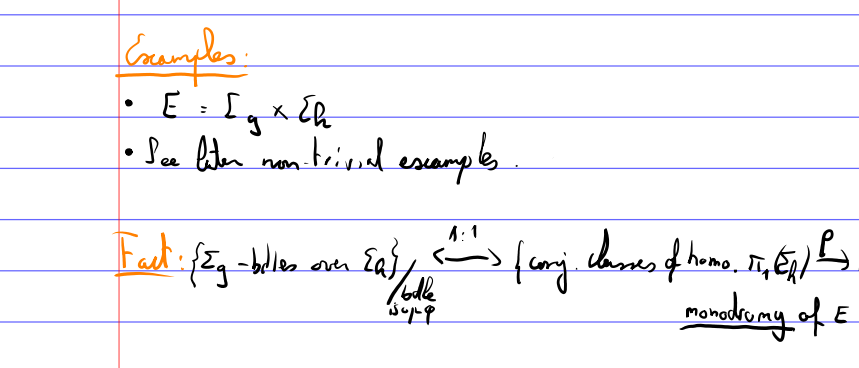 Examples:
• E = Σ_g × Σ_h
• See later non-trivial examples.
Fact: {Σ_g-bdles over Σ_h}/bdle isom. ⟷ 1:1 {conj. classes of homo. π_1(Σ_h) ρ→
monodromy of E